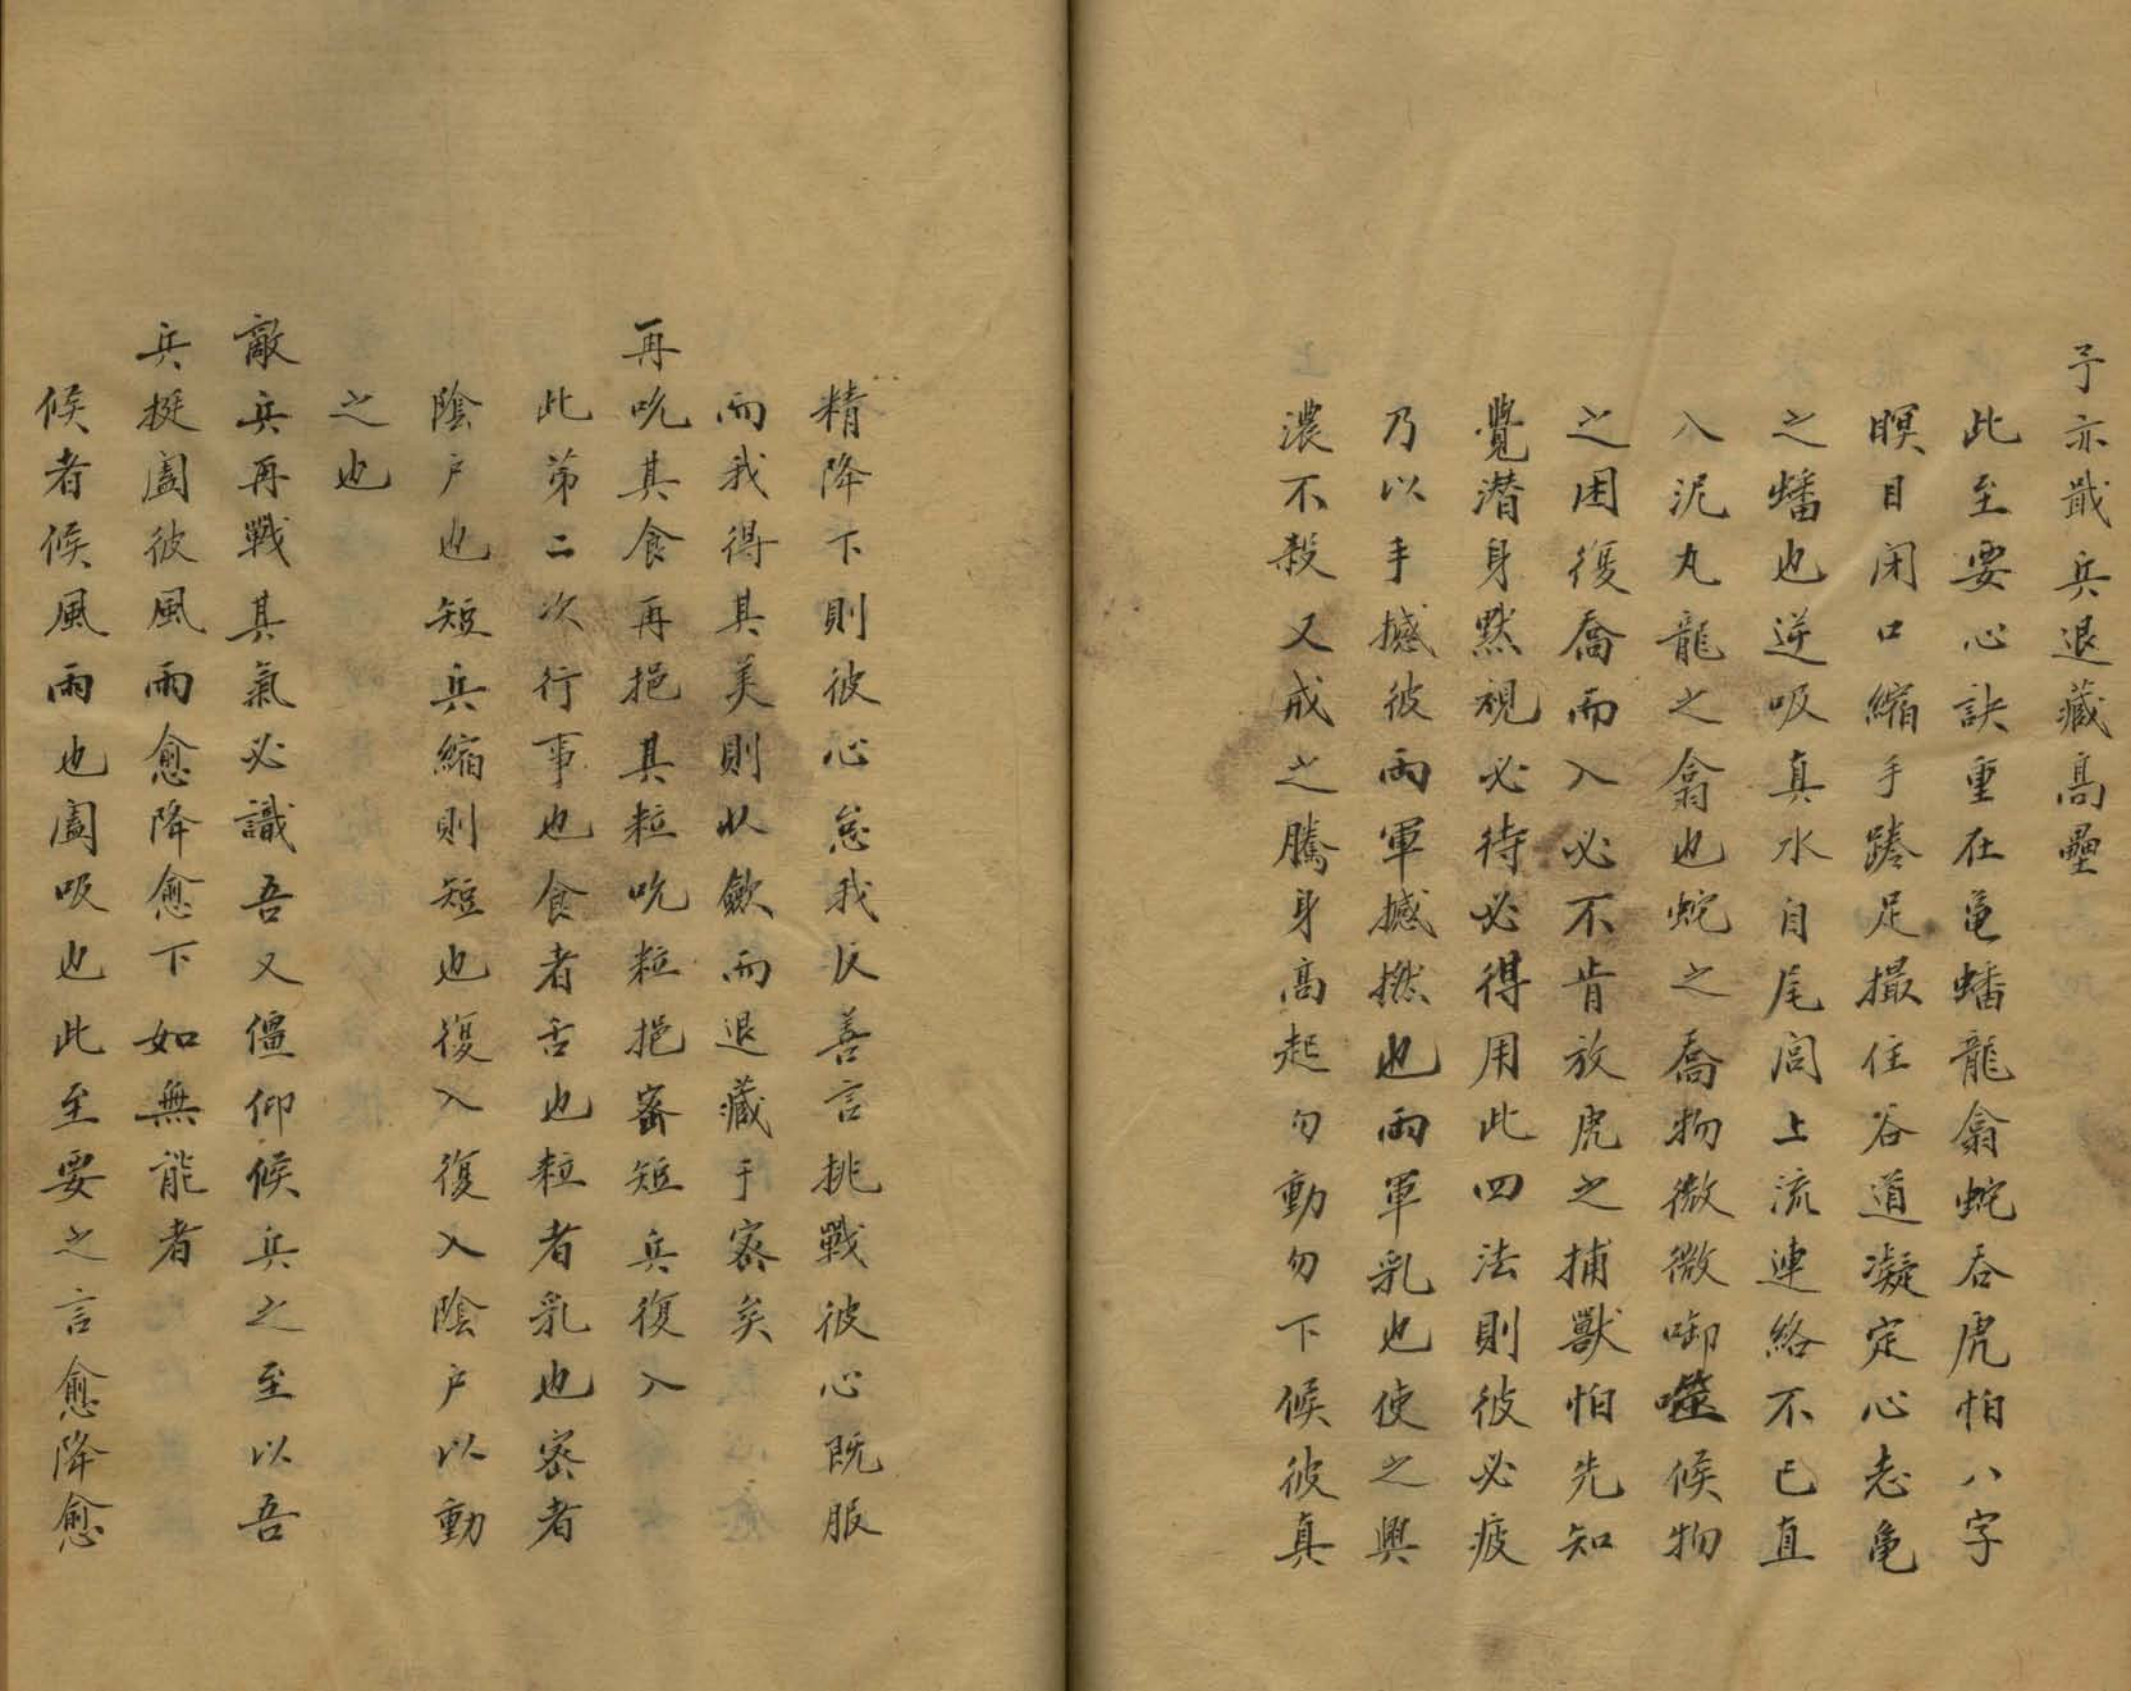 予亦戢兵退藏高壘
此至要心訣重在龟蟠龍翕蛇吞虎怕八字
瞑目闭口縮手踡足撮住谷道凝定心志龟
之蟠也逆吸真水自尾闾上流連絡不已直
入泥丸龍之翕也蛇之喬物微微啣噬候物
之困復喬而入必不肯放虎之捕獸怕先知
覺潜身默視必待必得用此四法則彼必疲
乃以手撼彼兩軍撼撚也兩軍乳也使之興
濃不殺又戒之騰身高起勿動勿下候彼真
精降下則彼心怠我反善言挑戰彼心既服
而我得其美則收歛而退藏于密矣
再吮其食再挹其粒吮粒挹密短兵復入
此第二次行事也食者舌也粒者乳也密者
陰户也短兵縮則短也復入復入陰户以動
之也
敵兵再戰其氣必識吾又僵仰候兵之至以吾
兵挺闔彼風雨愈降愈下如無能者
候者候風雨也闔吸也此至要之言愈降愈